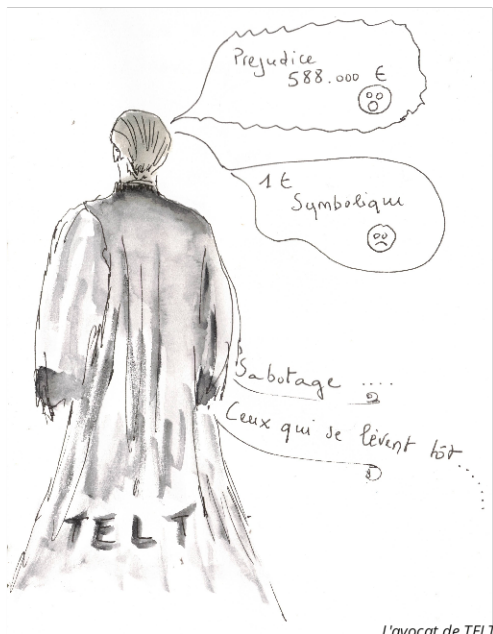 Prejudice
588.000 €
1 €
Symbolique
Sabotage ....
Ceux qui se lèvent tôt.......
TELT
L'avocat de TELT